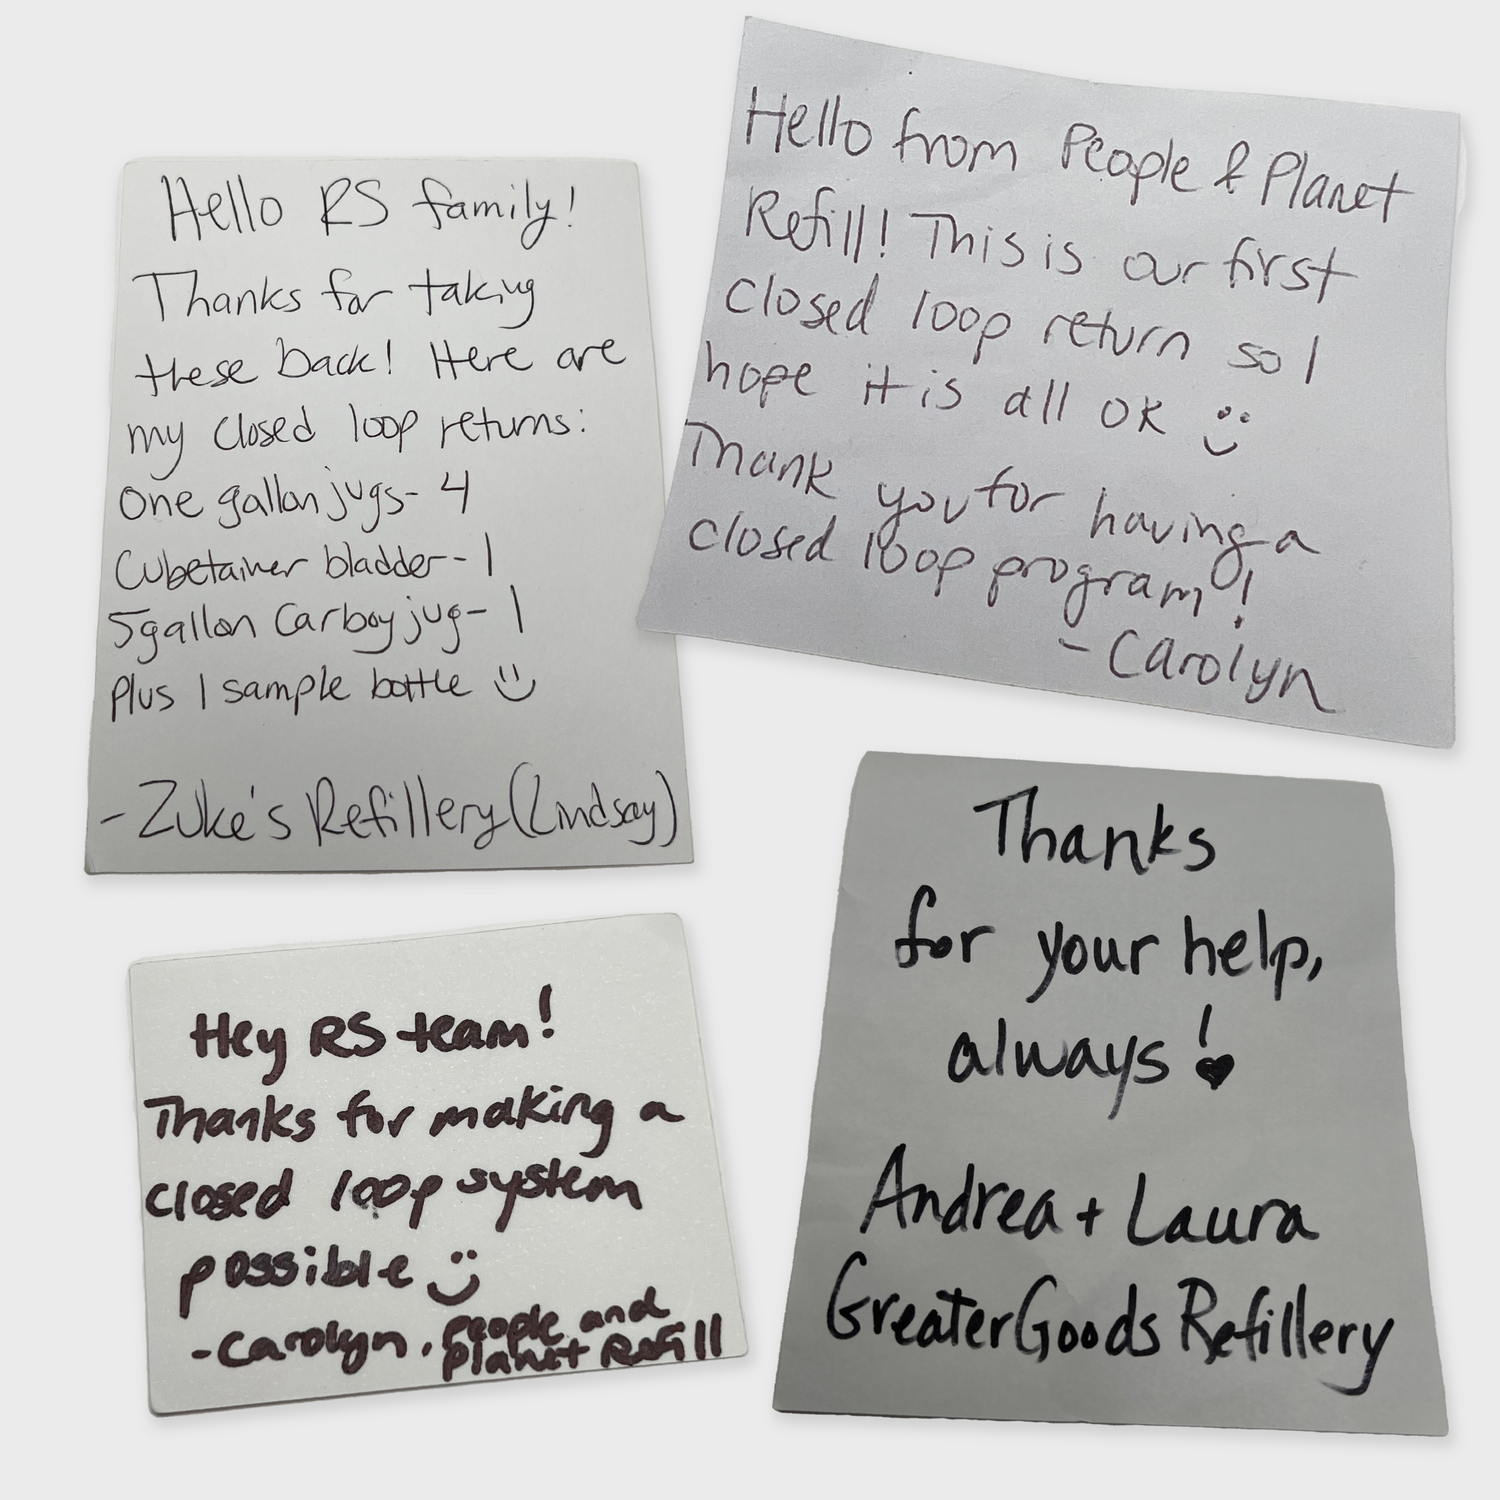 Hello RS family!
Thanks for taking
these back! Here are
my closed loop returns:
One gallon jugs- 4
Cubetainer bladder- 1
5gallon Carboy jug- 1
Plus 1 sample bottle
- Zuke's Refillery (Lindsay)
Hello from People & Planet
Refill! This is our first
closed loop return so I
hope it is all OK
Thank you for having a
closed loop program!
- Carolyn
Hey RS team!
Thanks for making a
closed loop system
possible
- Carolyn, people and
planet Refill
Thanks
for your help,
always!
Andrea + Laura
GreaterGoods Refillery